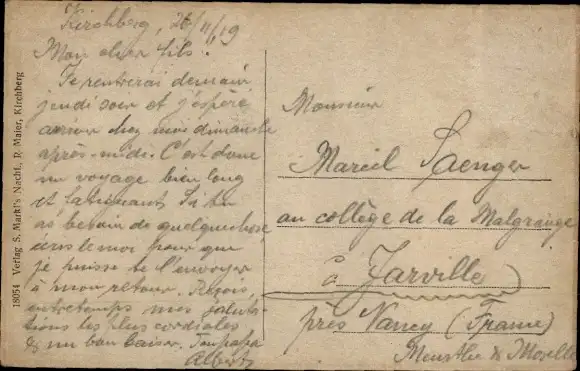 Kirchberg, 26/11/19
Mon cher fils!
Je rentrerai demain
jeudi soir et j'espère
arriver chez moi dimanche
après-midi. C'est donc
un voyage bien long
et fatiguant. Si tu
as besoin de quelque chose,
écris le moi pour que
je puisse te l'envoyer
à mon retour. Reçois,
entretemps mes saluta-
tions les plus cordiales
& un bon baiser. Ton papa
Albert
Monsieur
Marcel Saenger
au collège de la Malgrange
à Jarville
près Nancy (France)
Meurthe & Moselle
18054 Verlag S. Markl's Nachf., R. Maier, Kirchberg